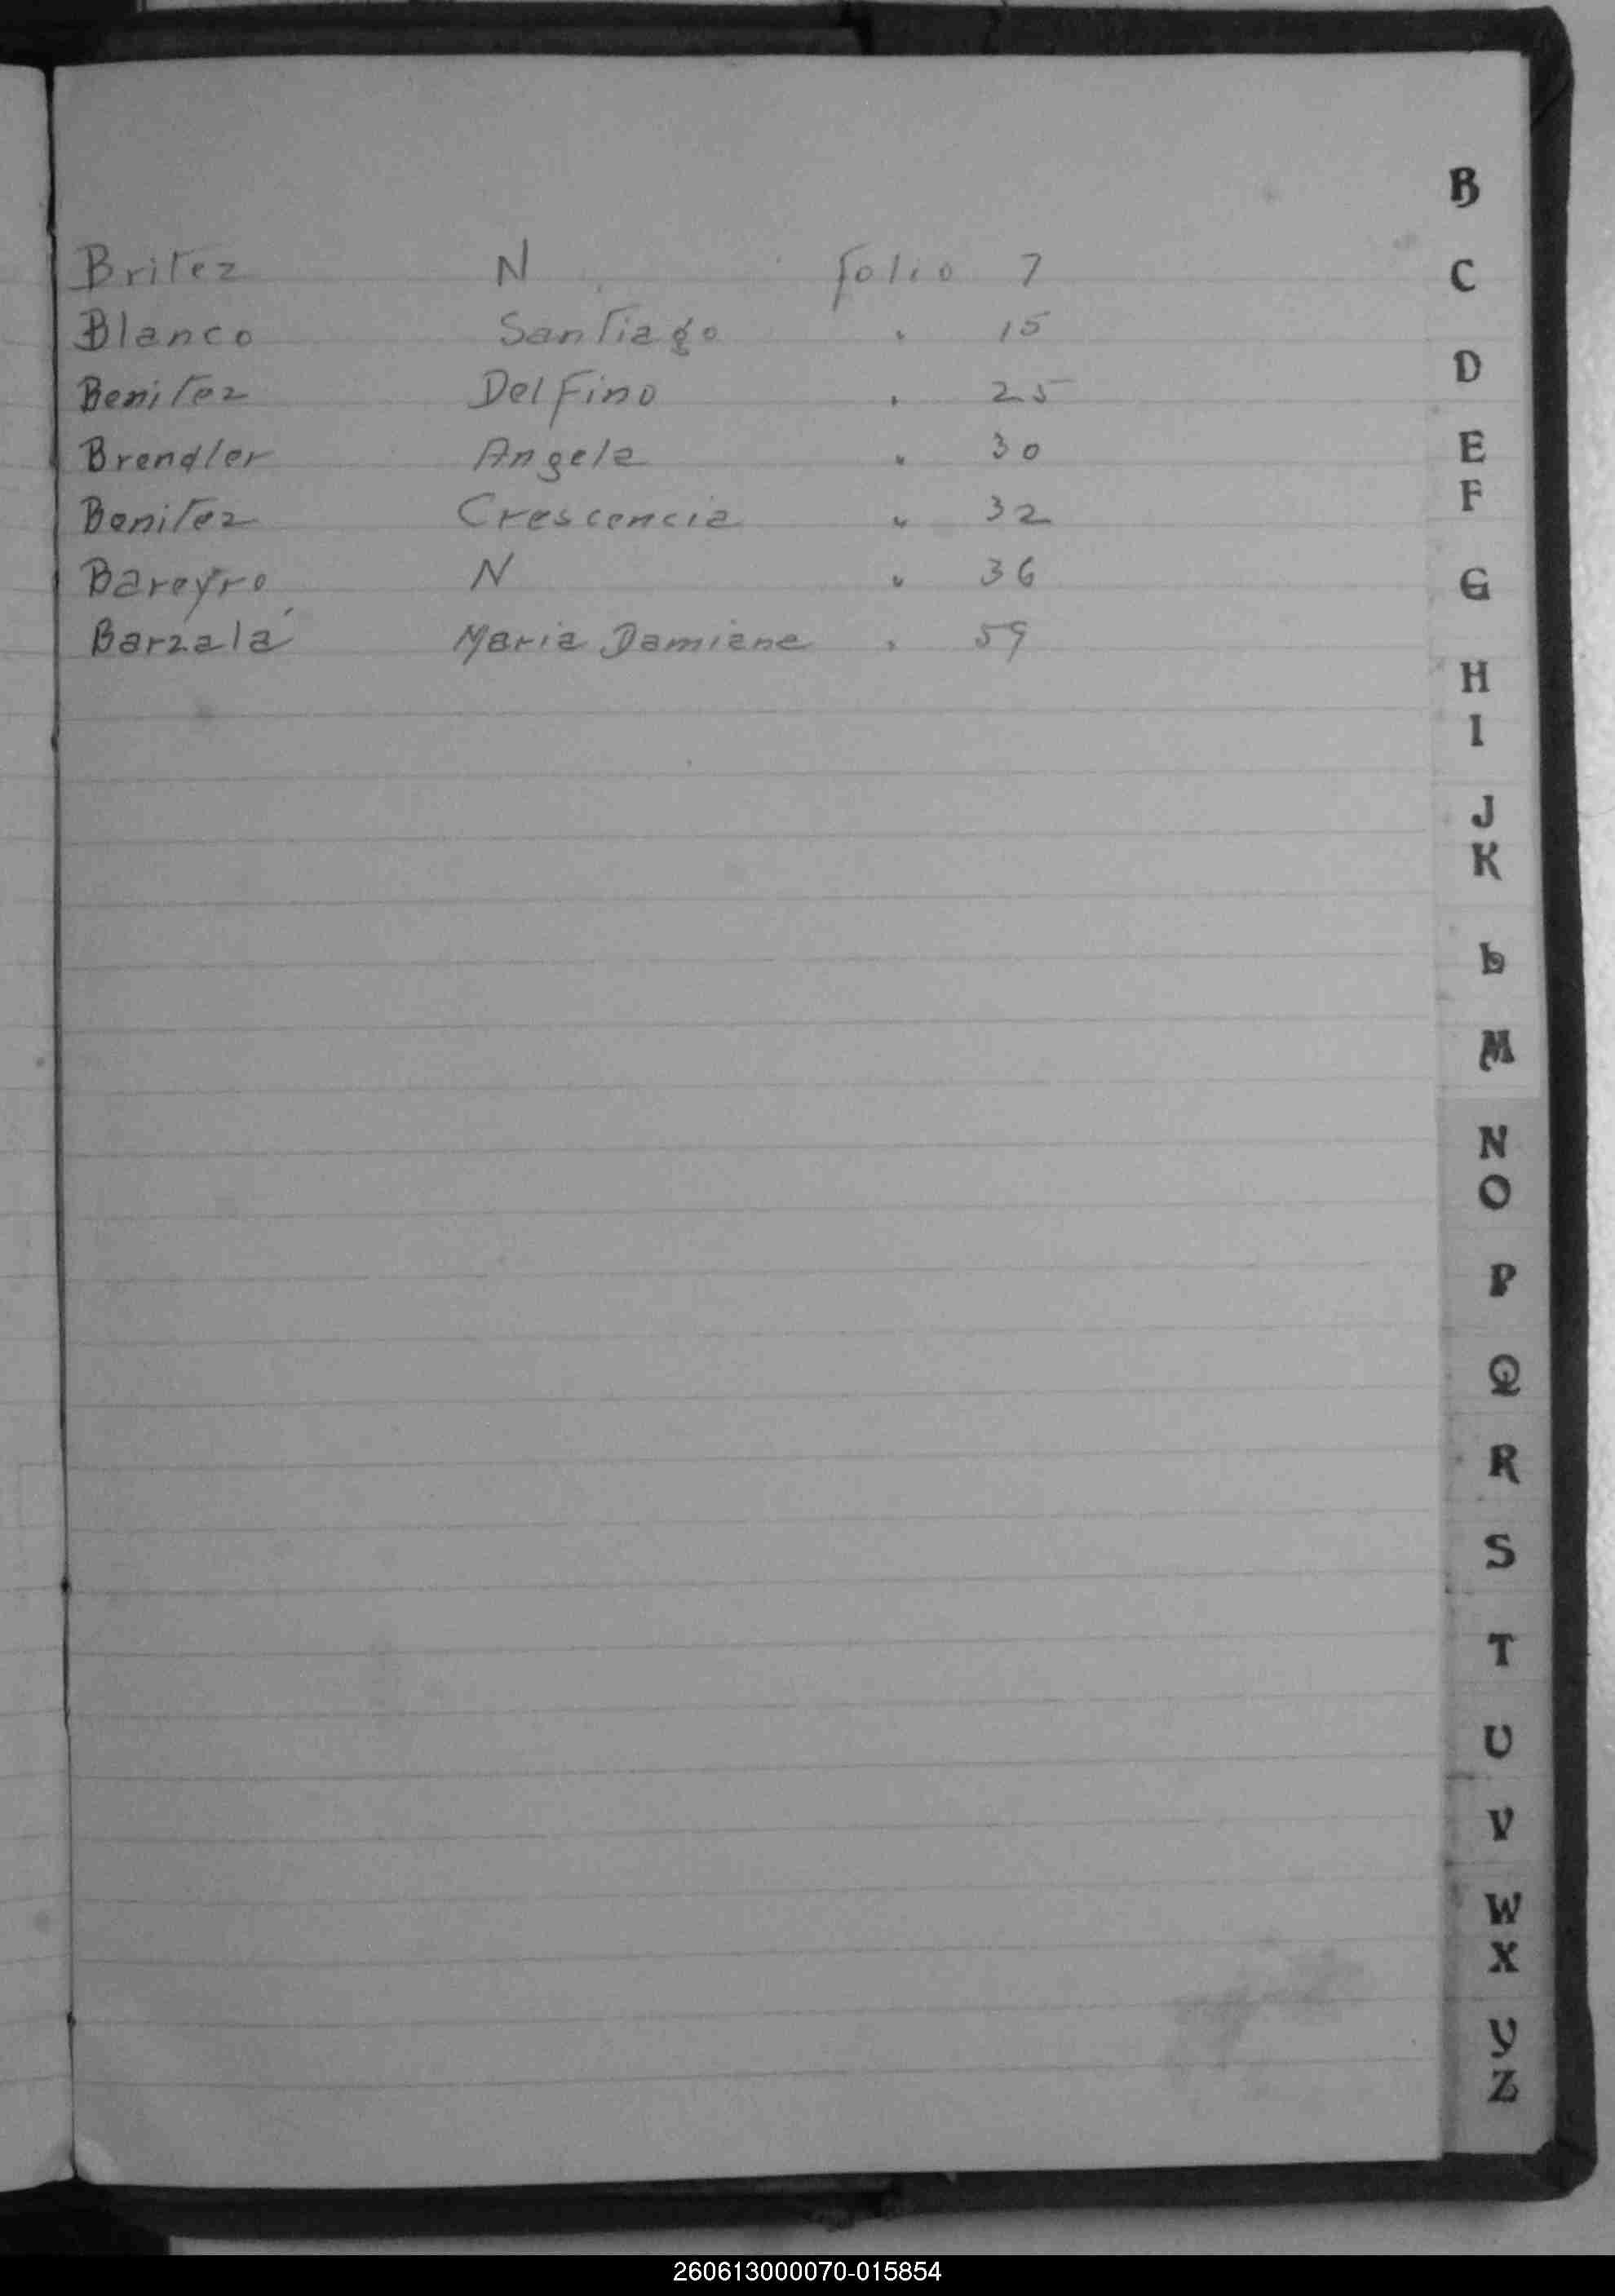 Britez N folio 7
Blanco Santiago " 15
Benitez Delfino " 25
Brendler Angela " 30
Benitez Crescencia " 32
Bareyro N " 36
Barzalá Maria Damiana " 59
B
C
D
E
F
G
H
I
J
K
L
M
N
O
P
Q
R
S
T
U
V
W
X
Y
Z
260613000070-015854